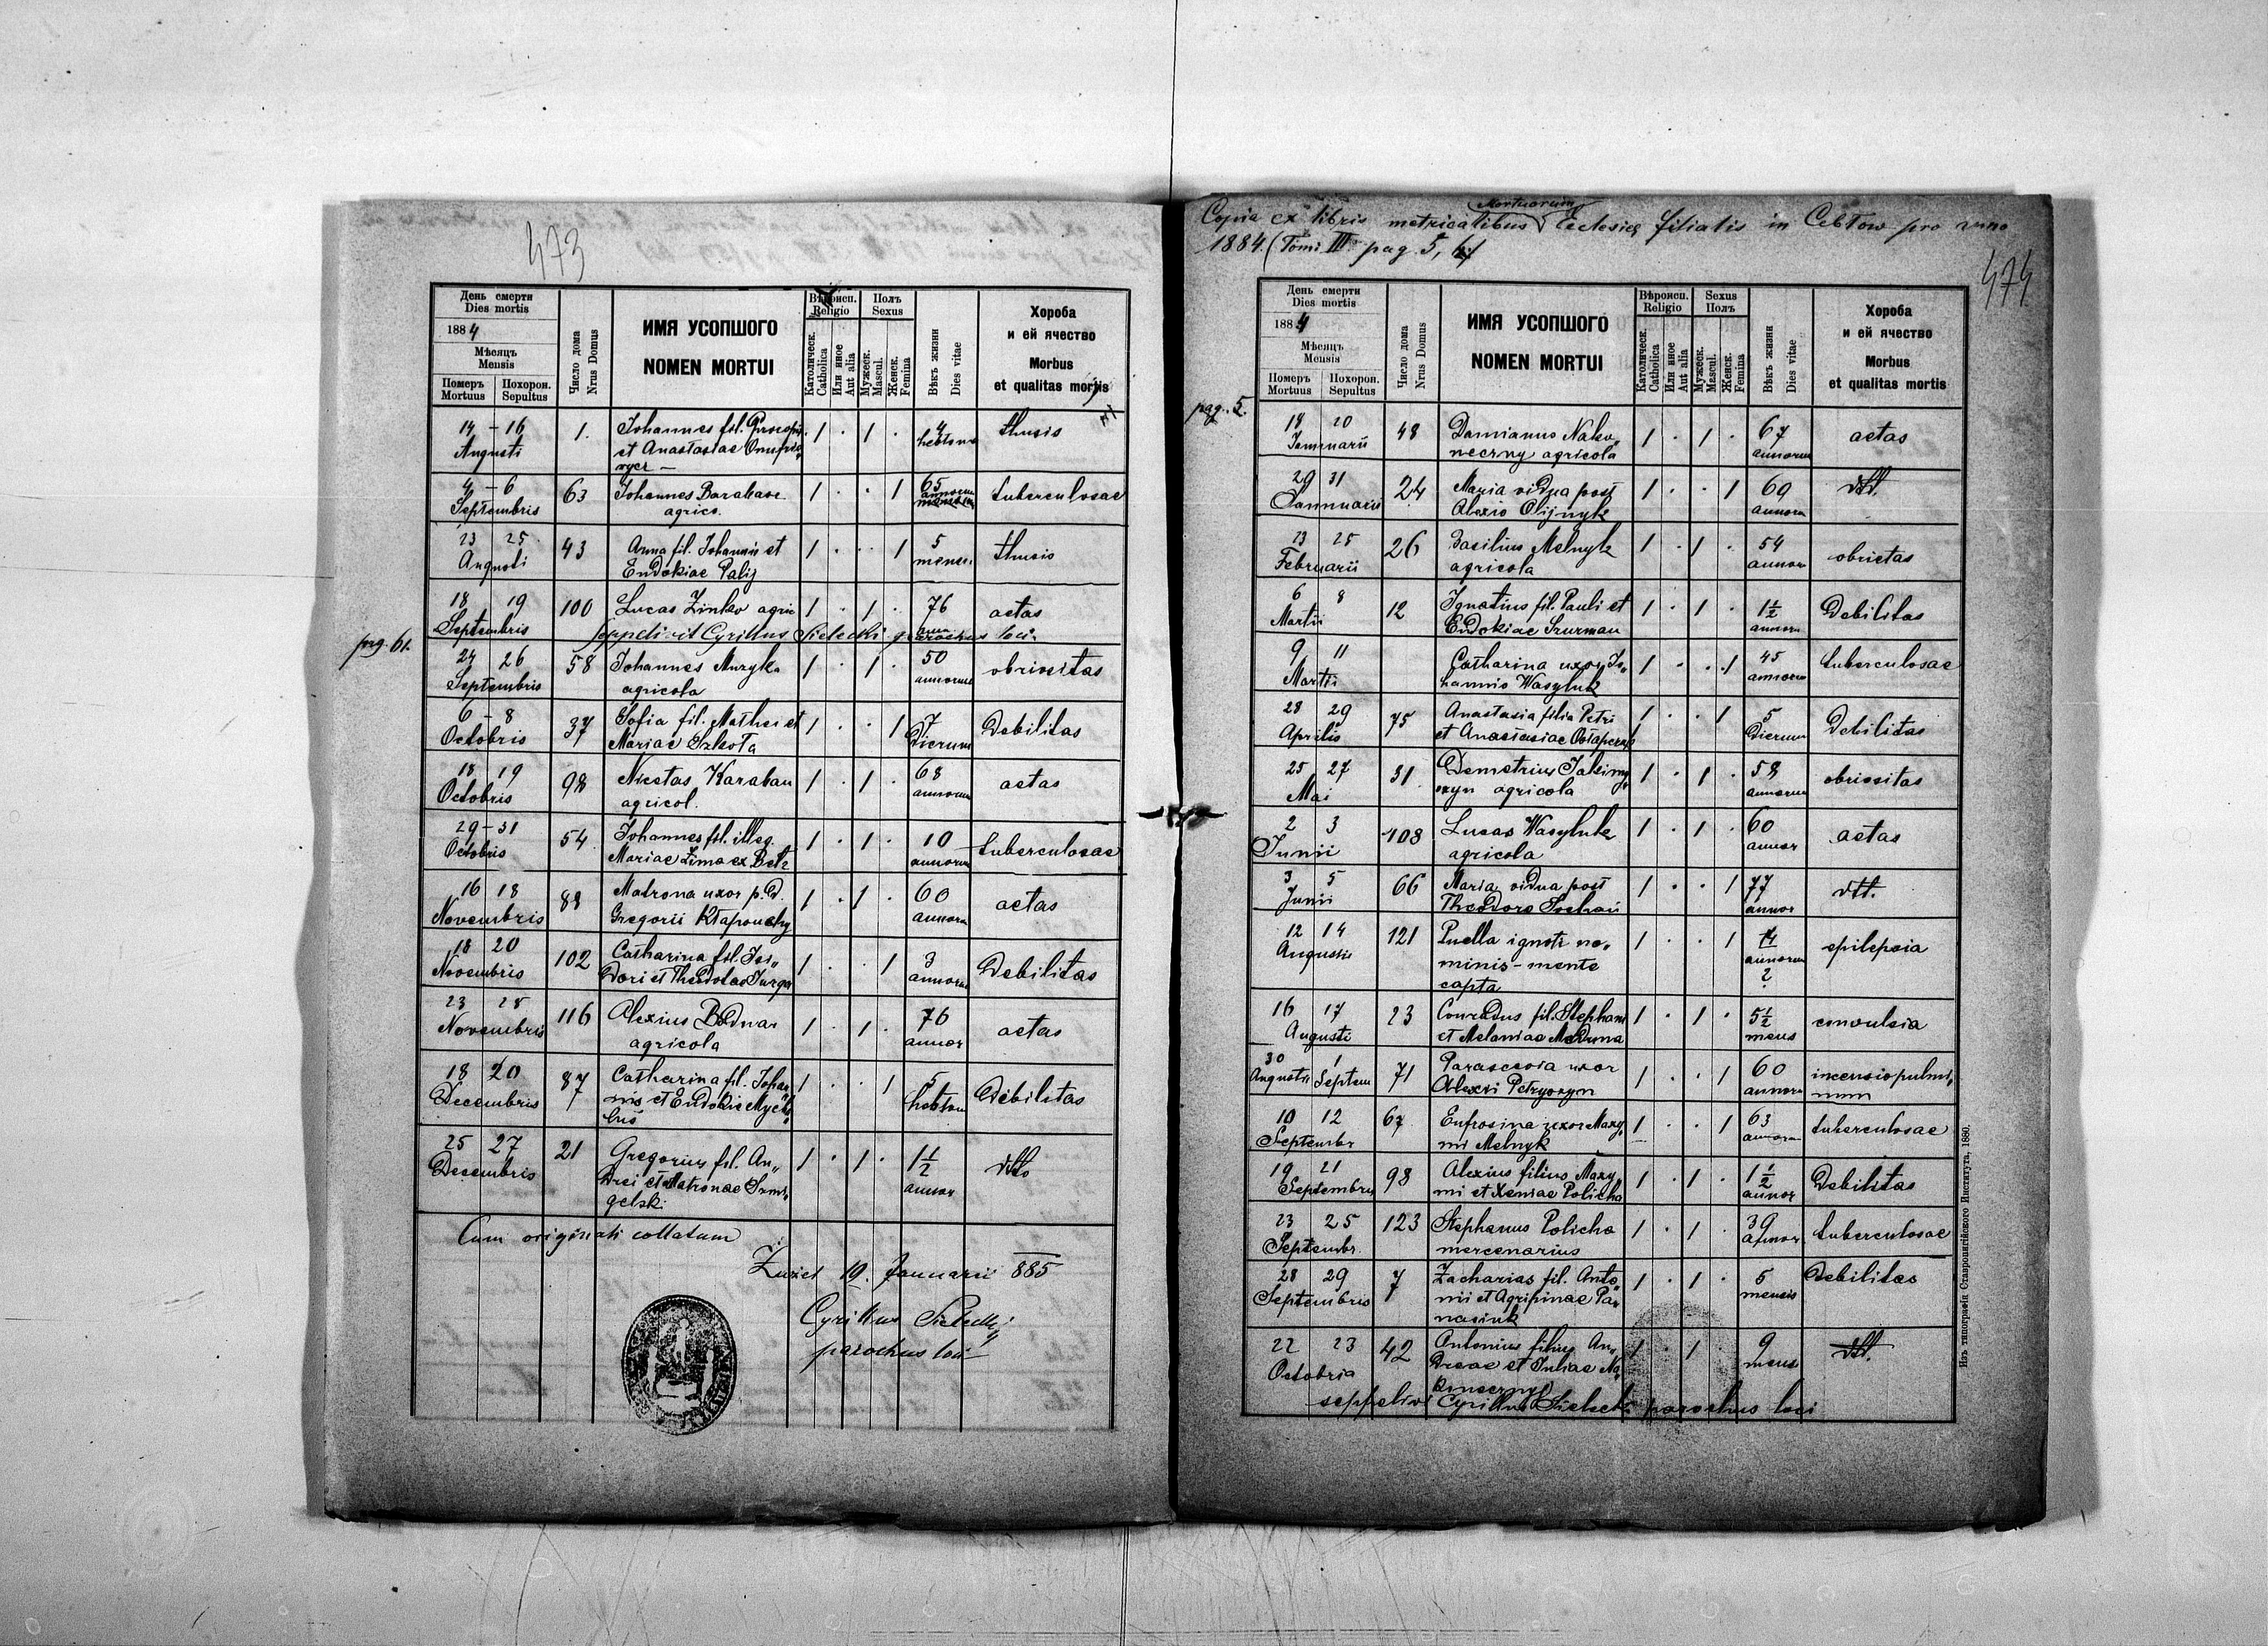 473
День смерти
Dies mortis
1884
Мѣсяцъ
Mensis
Померъ Mortuus
Похорон. Sepultus
Число дома
Nrus Domus
ИМЯ УСОПШОГО
NOMEN MORTUI
Вѣроисп.
Religio
Католическ.
Catholica
Или иное
Aut alia
Полъ
Sexus
Мужеск.
Mascul.
Женск.
Femina
Вѣкъ жизни
Dies vitae
Хороба
и ей ячество
Morbus
et qualitas mortis
14 - 16 1. Johannes fil. Procopii 1 . 1 . 4 thusis
Augusti et Anastasiae Onufrio„
4 - 6 63 Johannes Barabasz 1 . . 1 65 tuberculosae
Septembris agrico. annorum
23 25 43 Anna fil. Johannis et 1 . . 1 5 thusis
Augusti Eudokiae Palij
18 19 100 Lucas Zinko agric 1 . 1 . 76 aetas
Septembris seppelivit Cyrillus Sielecki parochus loci
pag. 61.
24 26 58 Johannes Muzyka 1 . 1 . 50 obriositas
Septembris agricola annorum
6 - 8 37 Sofia fil. Mathei et 1 . . 1 7 Debilitas
Octobris Mariae Szkota Dierum
18 19 98 Nicetas Karaban 1 . 1 . 68 aetas
Octobris agricol. annorum
29 - 31 54 Johannes fil. illeg. 1 . 1 . 10 tuberculosae
Octobris Mariae Zima ex Betz annorum
16 18 88 Matrona uxor p. d. 1 . 1 . 60 aetas
Novembris Gregorii Kłapouchy annoru
18 20 102 Catharina fil. Isi„ 1 . . 1 3 Debilitas
Novembris Dori et Theodolae Jurga annorum
23 25 116 Alexius Bodnar 1 . 1 . 76 aetas
Novembris agricola annor
18 20 87 Catharina fil. Johan 1 . . 1 5 Debilitas
Decembris nis et Eudokie Mycha„ hebtom
25 27 21 Gregorius fil. An„ 1 . 1 . 1 1/2 dtto
Decembris Drei et Matronae Szmi„ annor
gelski
Cum originali collatum
Zuziel 19. Januarii 885
Cyrillus Sielecki
parochus loci
Copia ex libris metricalibus Mortuorum Ecclesiae filialis in Cebłow pro anno
1884 (Tomi III pag. 5, 6)
474
День смерти
Dies mortis
1884
Мѣсяцъ
Mensis
Померъ Mortuus
Похорон. Sepultus
Число дома
Nrus Domus
ИМЯ УСОПШОГО
NOMEN MORTUI
Вѣроисп.
Religio
Католическ.
Catholica
Или иное
Aut alia
Sexus
Полъ
Мужеск.
Mascul.
Женск.
Femina
Вѣкъ жизни
Dies vitae
Хороба
и ей ячество
Morbus
et qualitas mortis
pag. 5.
18 20 48 Damianus Nako„ 1 . 1 . 67 aetas
Januarii neczny agricola annorum
29 31 24 Maria vidua post 1 . . 1 69 dtt.
Januarii Alexio Olijnyk annoru
23 25 26 Basilius Melnyk 1 . 1 . 54 obrietas
Februarii agricola annoru
6 8 12 Ignatius fil. Pauli et 1 . 1 . 1 1/2 Debilitas
Martii Eudokiae Szurman annoru
9 11 Catharina uxor Jo„ 1 . . 1 45 tuberculosae
Martii hannis Wasyluk annorum
28 29 75 Anastasia filia Petri 1 . . 1 5 Debilitas
Aprilis et Anastasiae Dierum
25 27 31 Demetrius Jakimy„ 1 . 1 . 58 obriositas
Mai szyn agricola annorum
2 3 108 Lucas Wasyluk 1 . 1 . 60 aetas
Junii agricola annor
3 5 66 Maria vidua post 1 . . 1 77 dtt.
Junii Theodoro Sochan annor
12 14 121 Puella ignoti no„ 1 . . 1 14 epilepsia
Augusti minis - mente annorum
capta ?
16 17 23 Conradus fil. Stephani 1 . 1 . 5 1/2 convulsia
Augusti et Melaniae Meduna mens
30 1 71 Parascevia uxor 1 . . 1 60 incensio pulmo„
Augusti Septem Alexii Petryszyn annoru num
10 12 67 Eufrosina uxor Maxy„ 1 . . 1 63 tuberculosae
Septembr mi Melnyk annoru
19 21 98 Alexius filius Maxy„ 1 . 1 . 1 1/2 Debilitas
Septembris mi et Xeniae Policha annor
23 25 123 Stephanus Policha 1 . 1 . 39 tuberculosae
Septembr. mercenarius annor
28 29 7 Zacharias fil. Anto„ 1 . 1 . 5 Debilitas
Septembris nii et Agripinae Pa„ mensis
nasiuk
22 23 42 Antonius filius An„ 1 . 1 . 9 dtt.
Octobris Dreae et Juliae Na„ mens
koneczny
seppelivi Cyrillus Sielecki parochus loci
Изъ типографіи Ставропигійского Института, 1880.